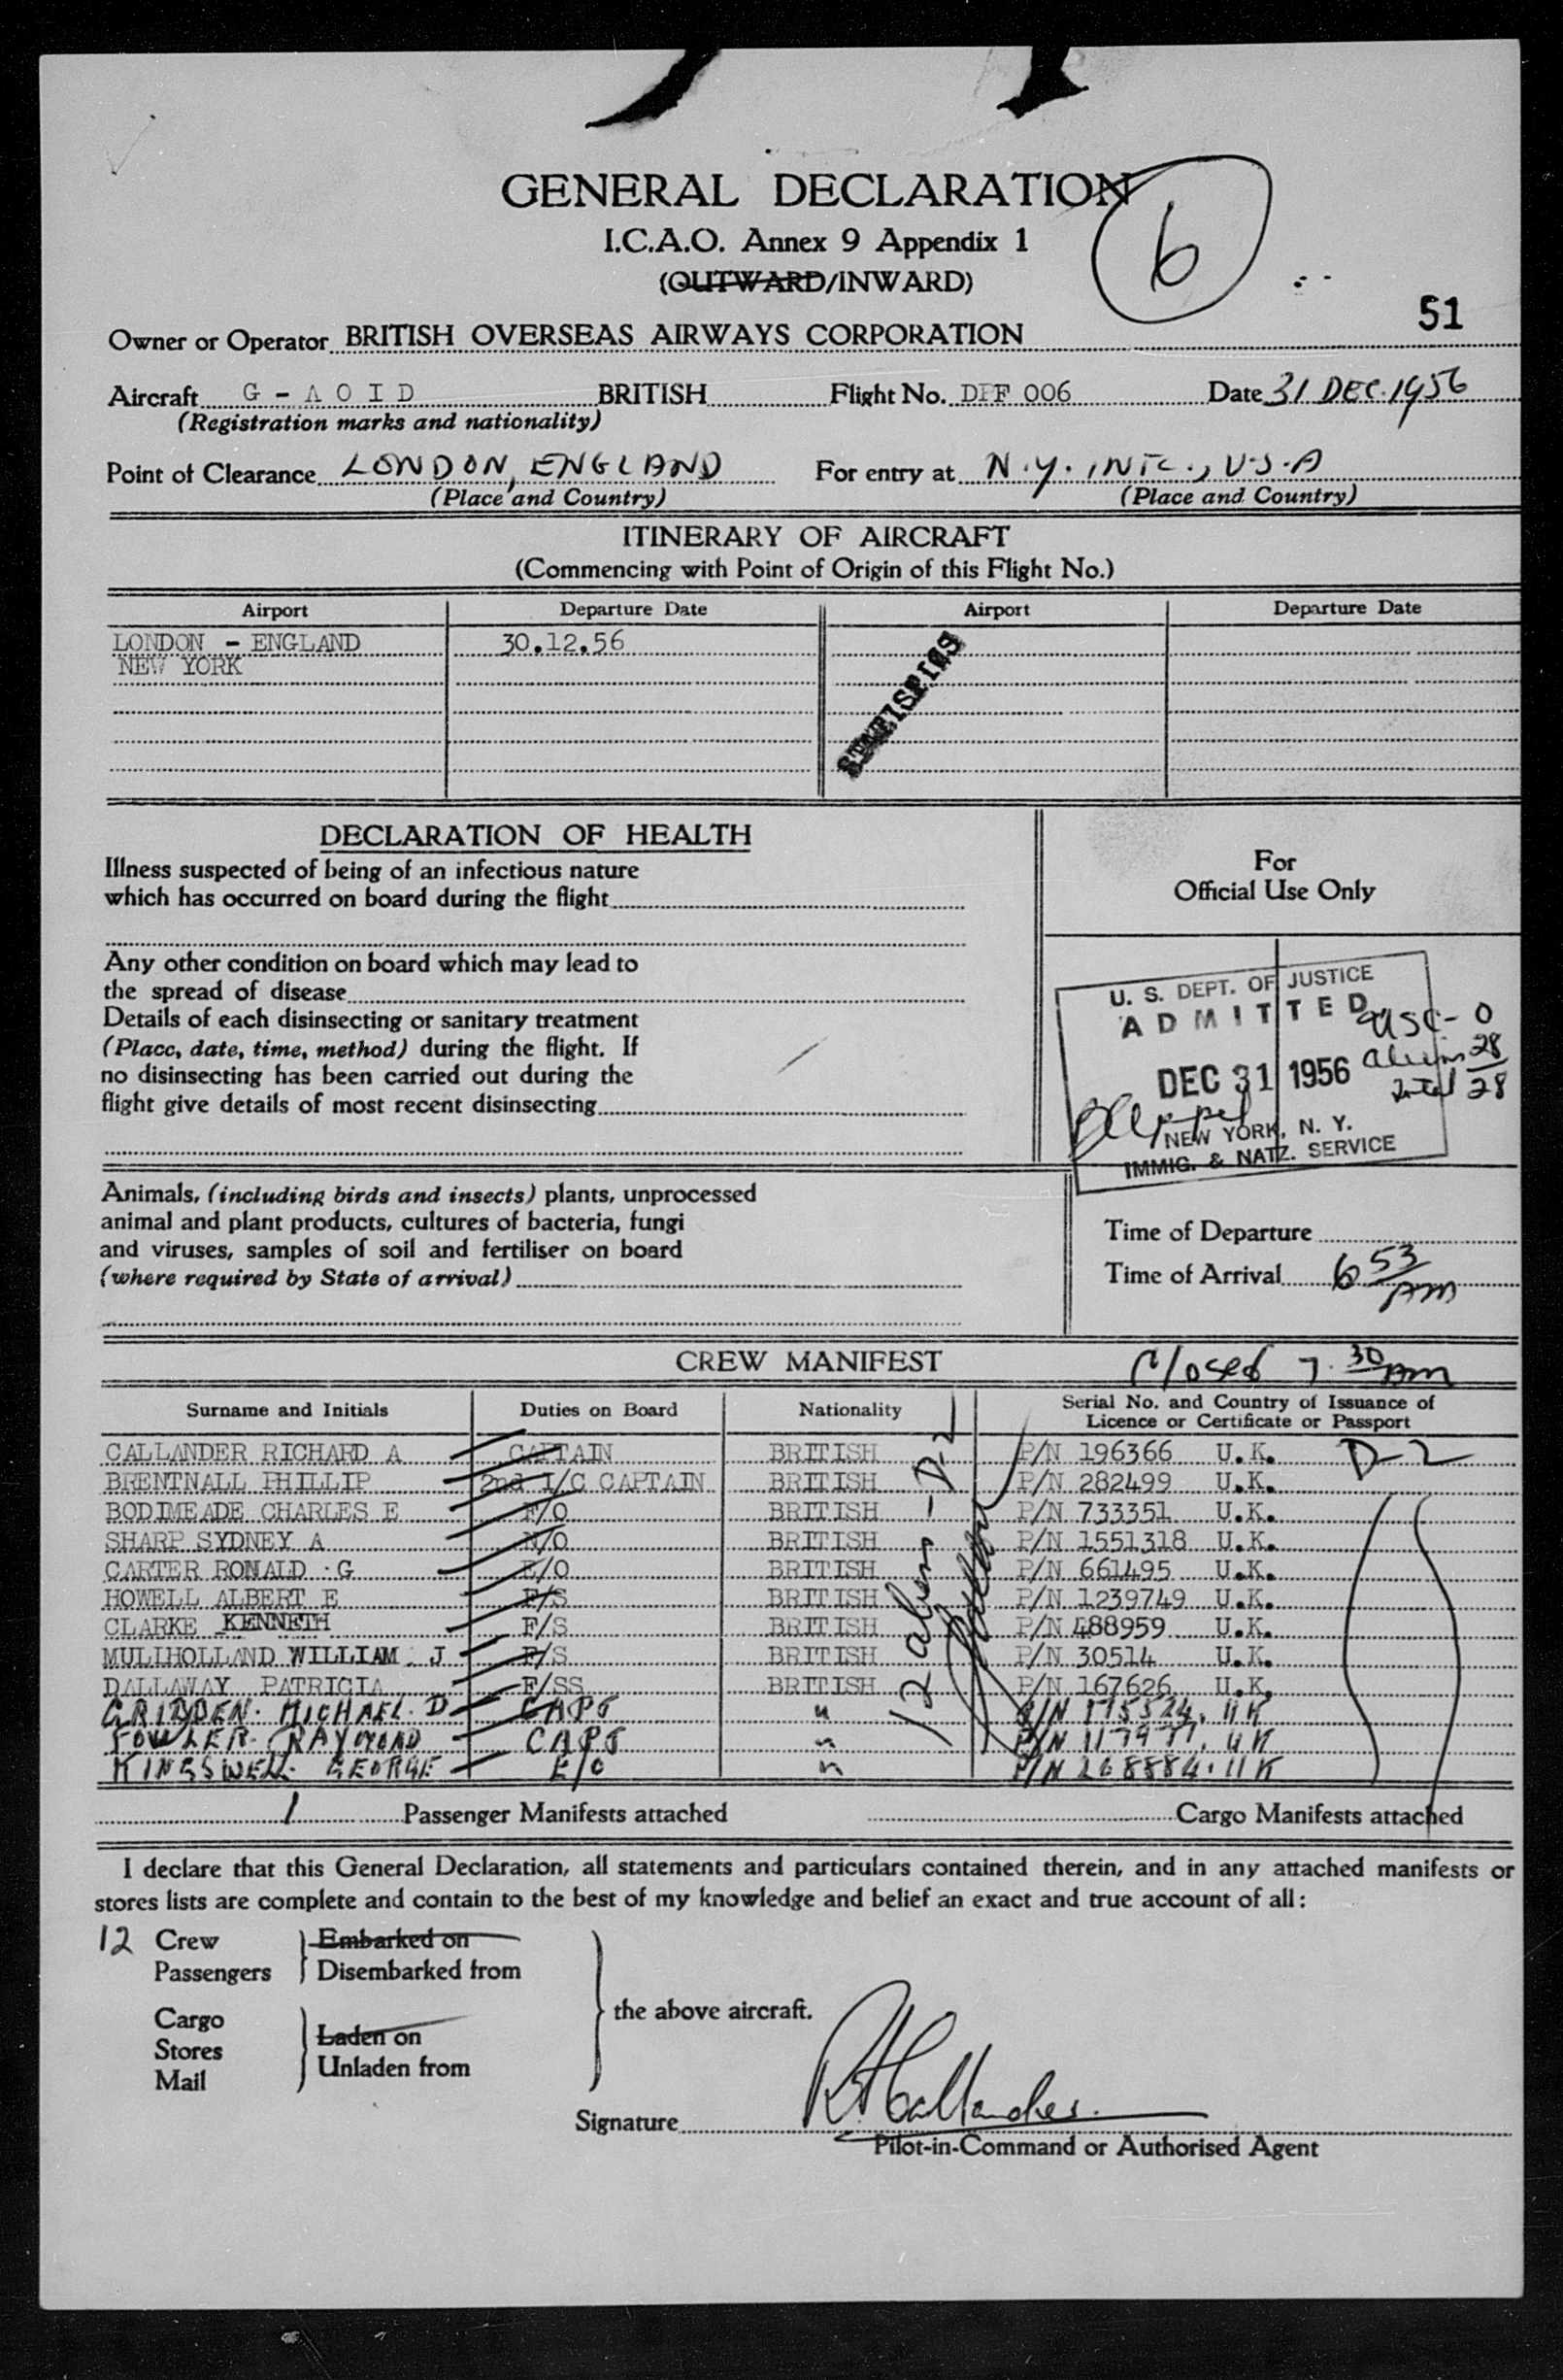 GENERAL DECLARATION
6
I.C.A.O. Annex 9 Appendix 1
(OUTWARD/INWARD)
51
Owner or Operator BRITISH OVERSEAS AIRWAYS CORPORATION
Aircraft G - A O I D BRITISH Flight No. DFF 006 Date 31 DEC. 1956
(Registration marks and nationality)
Point of Clearance LONDON, ENGLAND For entry at N.Y. INTL., U.S.A
(Place and Country) (Place and Country)
ITINERARY OF AIRCRAFT
(Commencing with Point of Origin of this Flight No.)
Airport Departure Date Airport Departure Date
LONDON - ENGLAND 30.12.56
NEW YORK
DECLARATION OF HEALTH
Illness suspected of being of an infectious nature
which has occurred on board during the flight
For
Official Use Only
Any other condition on board which may lead to
the spread of disease
Details of each disinsecting or sanitary treatment
(Place, date, time, method) during the flight. If
no disinsecting has been carried out during the
flight give details of most recent disinsecting
U. S. DEPT. OF JUSTICE
ADMITTED
USC - 0
Aliens 28
DEC 31 1956
Total 28
NEW YORK, N. Y.
IMMIG. & NATZ. SERVICE
Animals, (including birds and insects) plants, unprocessed
animal and plant products, cultures of bacteria, fungi
and viruses, samples of soil and fertiliser on board
(where required by State of arrival)
Time of Departure
Time of Arrival 6 53 AM
CREW MANIFEST
Closed 7.30 AM
Surname and Initials Duties on Board Nationality Serial No. and Country of Issuance of
Licence or Certificate or Passport
CALLANDER RICHARD A CAPTAIN BRITISH P/N 196366 U.K. D-2
BRENTNALL PHILLIP 2nd I/C CAPTAIN BRITISH P/N 282499 U.K.
BODIMEADE CHARLES E F/O BRITISH P/N 733351 U.K.
SHARP SYDNEY A N/O BRITISH P/N 1551318 U.K.
CARTER RONALD G E/O BRITISH P/N 661495 U.K.
HOWELL ALBERT E F/S BRITISH P/N 1239749 U.K.
CLARKE KENNETH F/S BRITISH P/N 488959 U.K.
MULLHOLLAND WILLIAM J F/S BRITISH P/N 30514 U.K.
DALLAWAY PATRICIA F/SS BRITISH P/N 167626 U.K.
MICHAEL. D CAPT " P/N UK
FOWLER. RAYMOND CAPT " P/N UK
KINGSWELL GEORGE E/O " P/N 268884. UK
12 aliens - D-2
1 Passenger Manifests attached Cargo Manifests attached
I declare that this General Declaration, all statements and particulars contained therein, and in any attached manifests or
stores lists are complete and contain to the best of my knowledge and belief an exact and true account of all:
12 Crew Embarked on
Passengers Disembarked from
the above aircraft.
Cargo
Stores Laden on
Mail Unladen from
Signature R A Callander.
Pilot-in-Command or Authorised Agent